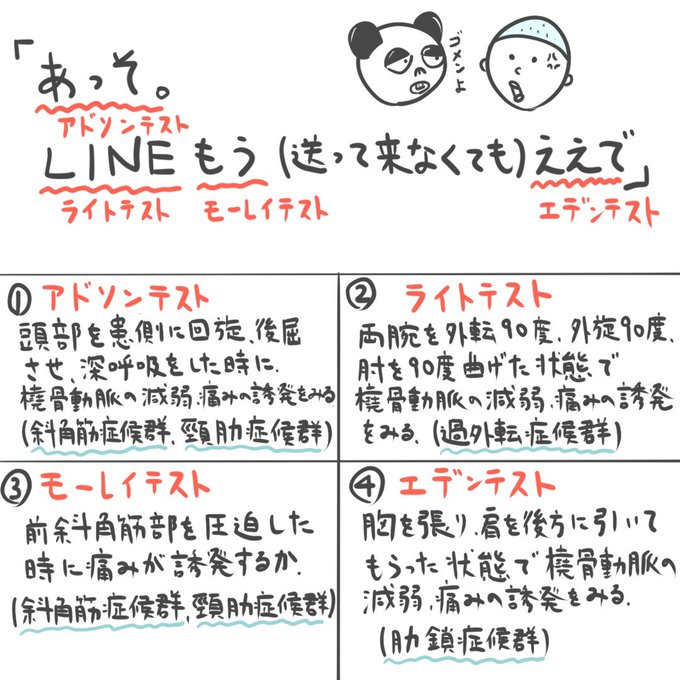 「あっそ。
アドソンテスト
ゴメンよ
LINEもう(送って来なくても)ええで」
ライトテスト モーレイテスト エデンテスト
① アドソンテスト
頭部を患側に回旋、後屈
させ、深呼吸をした時に、
橈骨動脈の減弱、痛みの誘発をみる
(斜角筋症候群、頸肋症候群)
② ライトテスト
両腕を外転90度、外旋90度、
肘を90度曲げた状態で
橈骨動脈の減弱、痛みの誘発
をみる、(過外転症候群)
③ モーレイテスト
前斜角筋部を圧迫した
時に痛みが誘発するか、
(斜角筋症候群、頸肋症候群)
④ エデンテスト
胸を張り、肩を後方に引いて
もらった状態で橈骨動脈の
減弱、痛みの誘発をみる、
(肋鎖症候群)